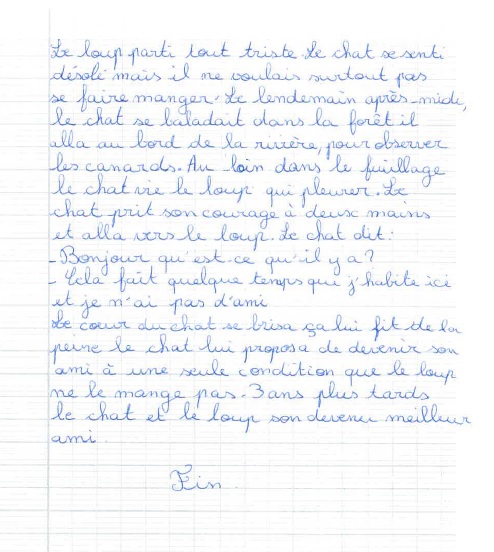 Le loup parti tout triste. Le chat se senti
désolé mais il ne voulais surtout pas
se faire manger. Le lendemain après-midi,
le chat se baladait dans la forêt il
alla au bord de la rivière, pour observer
les canards. Au loin dans le fuillage
le chat vie le loup qui pleurer. Le
chat prit son courage à deux mains
et alla vers le loup. Le chat dit :
- Bonjour qu'est-ce qu'il y a ?
- Cela fait quelque temps que j'habite ici
et je n'ai pas d'ami
Le cœur du chat se brisa ça lui fit de la
peine le chat lui proposa de devenir son
ami à une seule condition que le loup
ne le mange pas. 3 ans plus tards
le chat et le loup son devenu meilleur
ami.
Fin.